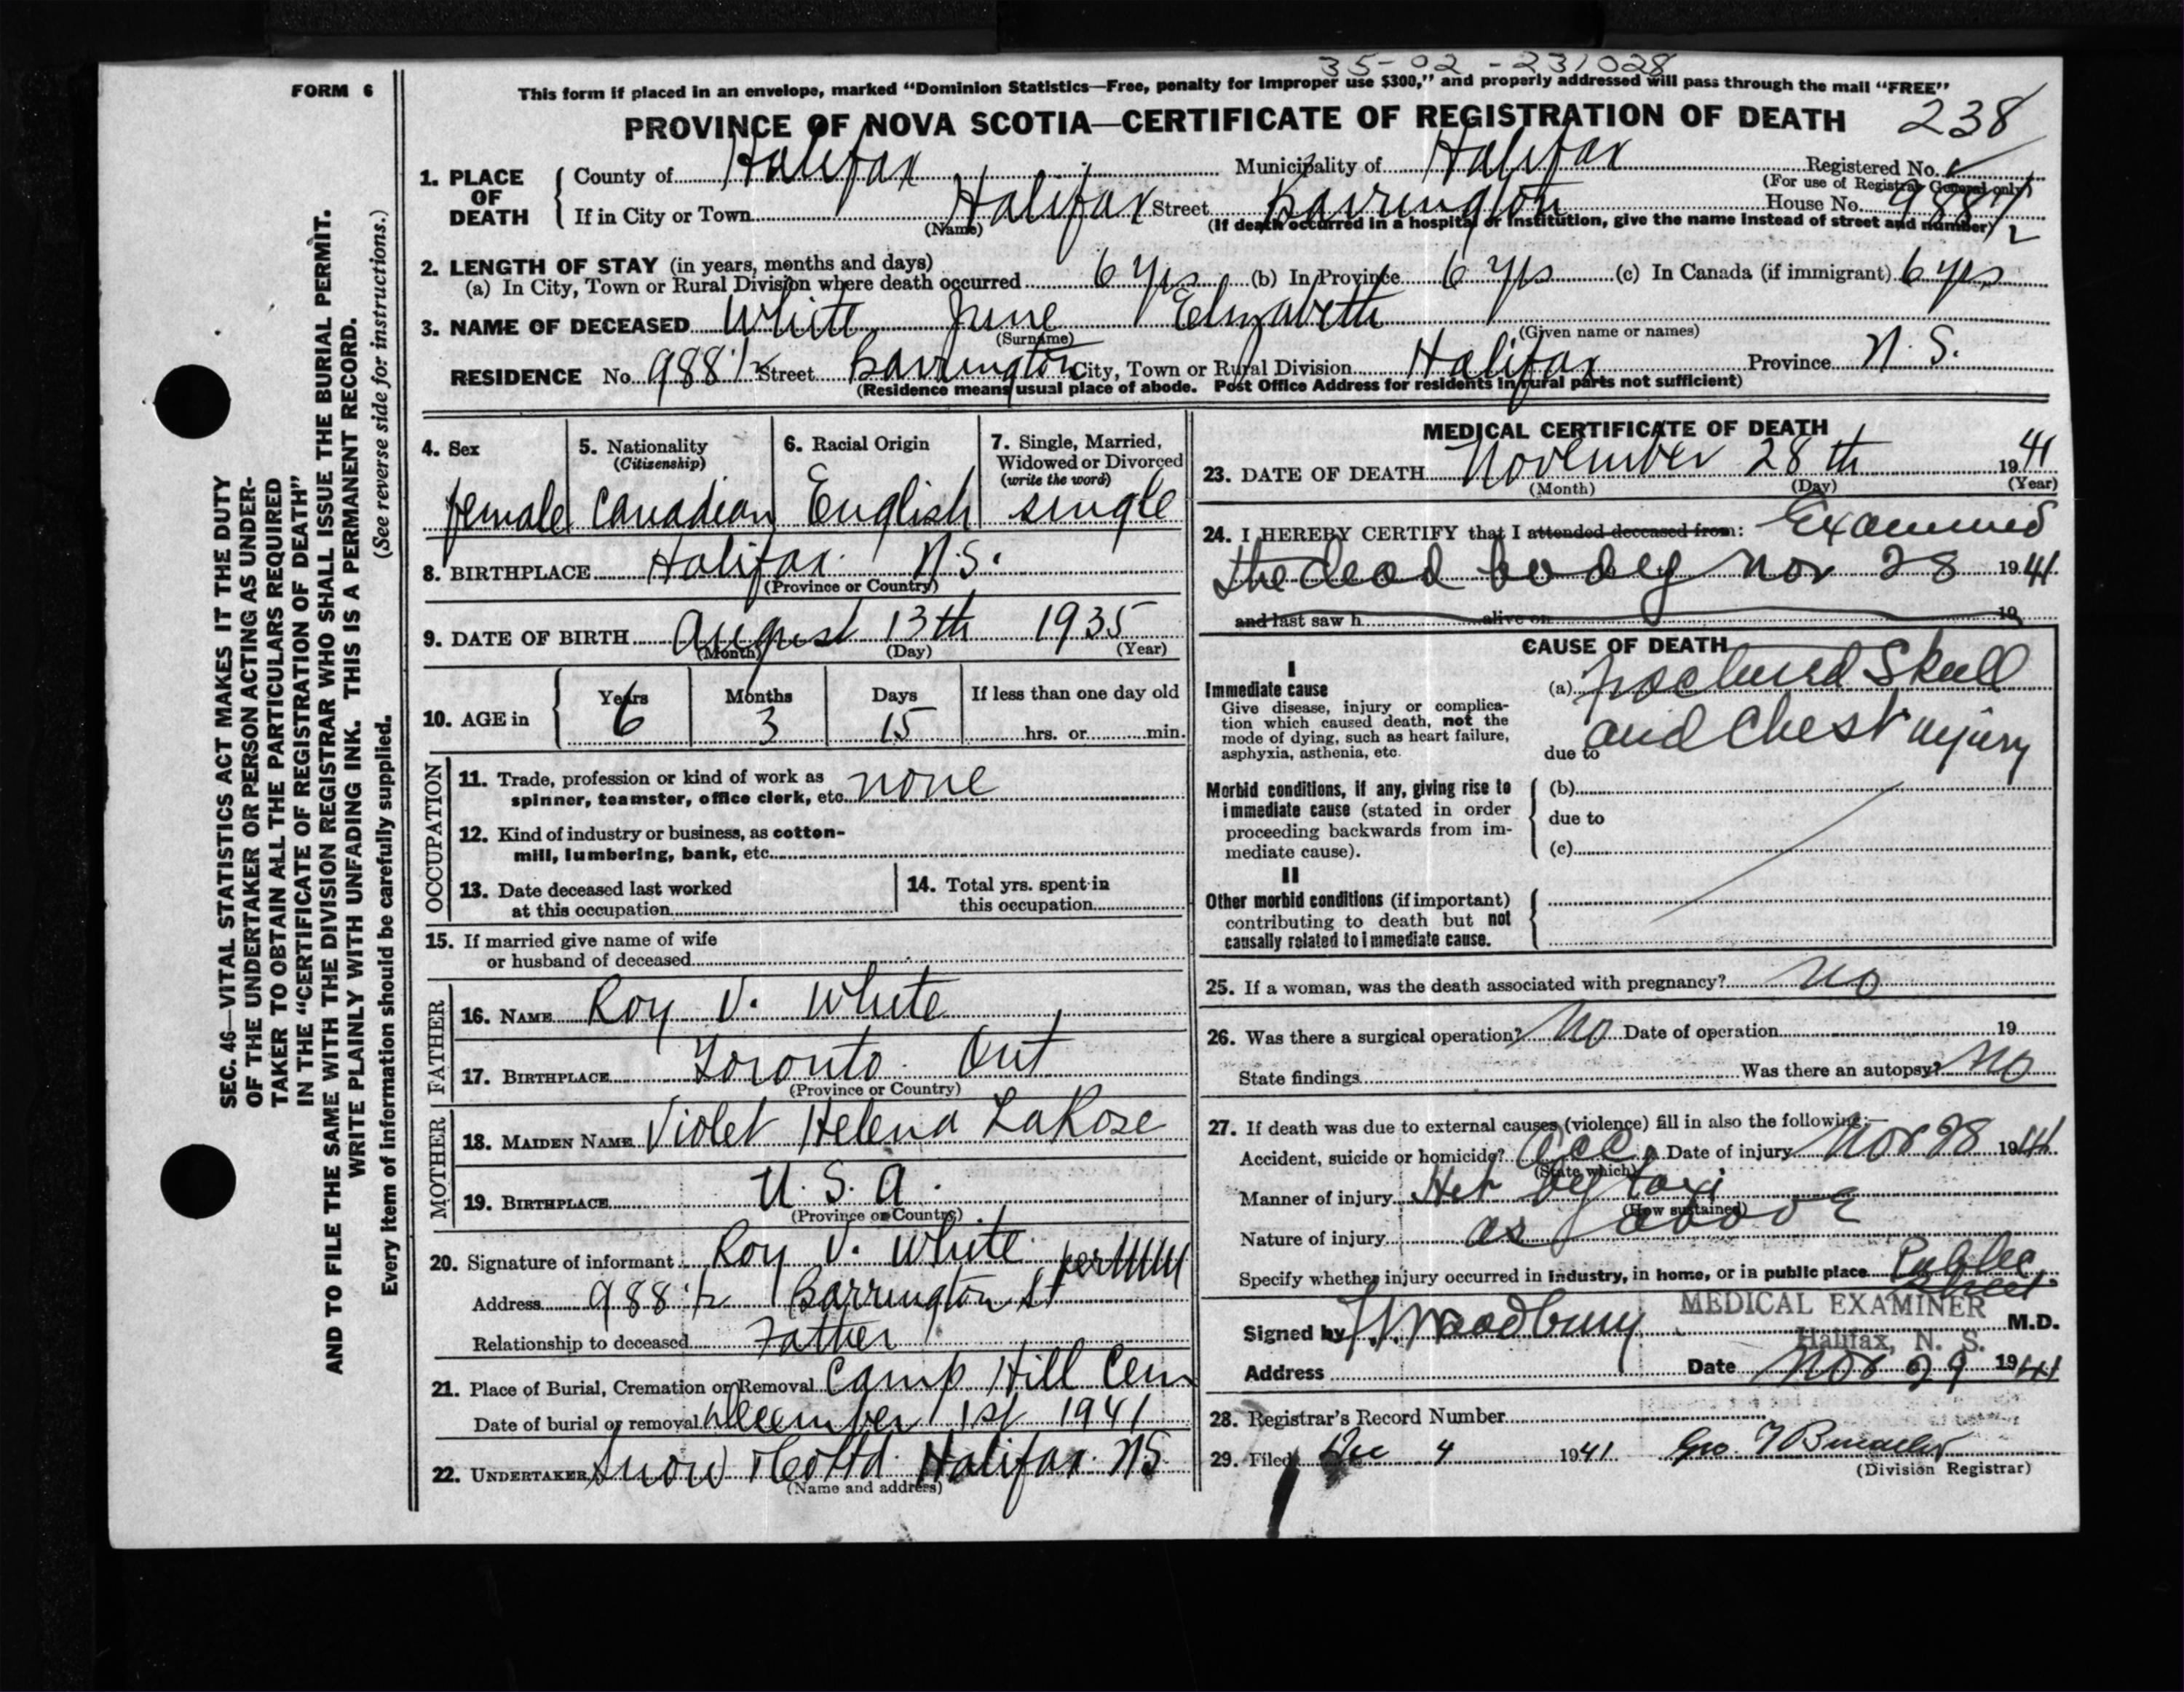 35-02-231028
FORM 6
This form if placed in an envelope, marked "Dominion Statistics—Free, penalty for improper use $300," and properly addressed will pass through the mail "FREE"
PROVINCE OF NOVA SCOTIA—CERTIFICATE OF REGISTRATION OF DEATH 238
1. PLACE OF DEATH { County of Halifax Municipality of Halifax Registered No. ✓
(For use of Registrar General only)
If in City or Town Halifax Street Barrington House No. 988 1/2
(Name) (If death occurred in a hospital or institution, give the name instead of street and number)
2. LENGTH OF STAY (in years, months and days)
(a) In City, Town or Rural Division where death occurred 6 yrs (b) In Province 6 yrs (c) In Canada (if immigrant) 6 yrs
3. NAME OF DECEASED White June Elizabeth
(Surname) (Given name or names)
RESIDENCE No. 988 1/2 Street Barrington City, Town or Rural Division Halifax Province N.S.
(Residence means usual place of abode. Post Office Address for residents in rural parts not sufficient)
4. Sex 5. Nationality (Citizenship) 6. Racial Origin 7. Single, Married, Widowed or Divorced (write the word)
female Canadian English single
8. BIRTHPLACE Halifax N.S.
(Province or Country)
9. DATE OF BIRTH August 13th 1935
(Month) (Day) (Year)
10. AGE in Years Months Days If less than one day old
6 3 15 hrs. or min.
OCCUPATION
11. Trade, profession or kind of work as
spinner, teamster, office clerk, etc. none
12. Kind of industry or business, as cotton-
mill, lumbering, bank, etc.
13. Date deceased last worked
at this occupation
14. Total yrs. spent in
this occupation
15. If married give name of wife
or husband of deceased
FATHER
16. NAME Roy V. White
17. BIRTHPLACE Toronto Ont
(Province or Country)
MOTHER
18. MAIDEN NAME Violet Helena LaRose
19. BIRTHPLACE U.S.A.
(Province or Country)
20. Signature of informant Roy V. White per
Address 988 1/2 Barrington St
Relationship to deceased Father
21. Place of Burial, Cremation or Removal Camp Hill Cem
Date of burial or removal December 1st 1941
22. UNDERTAKER Snow & Co Ltd. Halifax NS
(Name and address)
MEDICAL CERTIFICATE OF DEATH
23. DATE OF DEATH November 28th 1941
(Month) (Day) (Year)
24. I HEREBY CERTIFY that I attended deceased from: Examined
the dead body Nov 28 1941
and last saw h alive on 19
CAUSE OF DEATH
I
Immediate cause
Give disease, injury or complica-
tion which caused death, not the
mode of dying, such as heart failure,
asphyxia, asthenia, etc.
(a) Fractured Skull
due to and Chest injury
Morbid conditions, if any, giving rise to
immediate cause (stated in order
proceeding backwards from im-
mediate cause).
(b)
due to
(c)
II
Other morbid conditions (if important)
contributing to death but not
causally related to immediate cause.
25. If a woman, was the death associated with pregnancy? No
26. Was there a surgical operation? No Date of operation 19
State findings Was there an autopsy? No
27. If death was due to external causes (violence) fill in also the following:—
Accident, suicide or homicide? Acc. Date of injury Nov 28 1941
(State which)
Manner of injury Hit by taxi
(How sustained)
Nature of injury as above
Specify whether injury occurred in industry, in home, or in public place Public
Street
MEDICAL EXAMINER
Signed by Woodbury M.D.
Halifax, N. S.
Address Date Nov 29 1941
28. Registrar's Record Number
29. Filed Dec 4 1941 Geo.
(Division Registrar)
SEC. 46—VITAL STATISTICS ACT MAKES IT THE DUTY
OF THE UNDERTAKER OR PERSON ACTING AS UNDER-
TAKER TO OBTAIN ALL THE PARTICULARS REQUIRED
IN THE "CERTIFICATE OF REGISTRATION OF DEATH"
AND TO FILE THE SAME WITH THE DIVISION REGISTRAR WHO SHALL ISSUE THE BURIAL PERMIT.
WRITE PLAINLY WITH UNFADING INK. THIS IS A PERMANENT RECORD.
(See reverse side for instructions.)
Every item of information should be carefully supplied.